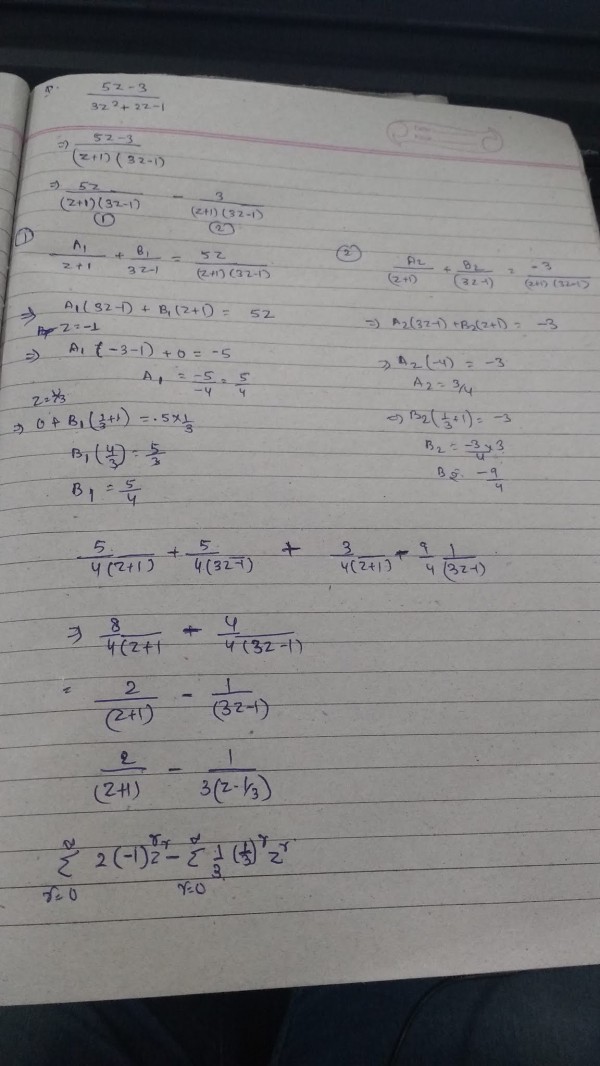 5z-3 / 3z²+2z-1
⇒ 5z-3 / (z+1)(3z-1)
⇒ 5z / (z+1)(3z-1) - 3 / (z+1)(3z-1)
① ②
① A₁/z+1 + B₁/3z-1 = 5z / (z+1)(3z-1)
⇒ A₁(3z-1) + B₁(z+1) = 5z
z=-1
⇒ A₁(-3-1) + 0 = -5
A₁ = -5/-4 = 5/4
z=1/3
⇒ 0 + B₁(1/3+1) = 5×1/3
B₁(4/3) = 5/3
B₁ = 5/4
② A₂/(z+1) + B₂/(3z-1) = -3 / (z+1)(3z-1)
⇒ A₂(3z-1) + B₂(z+1) = -3
⇒ A₂(-4) = -3
A₂ = 3/4
⇒ B₂(1/3+1) = -3
B₂ = -3/4 × 3
B₂ = -9/4
5/4(z+1) + 5/4(3z-1) + 3/4(z+1) - 9/4 1/(3z-1)
⇒ 8/4(z+1 - 4/4(3z-1)
= 2/(z+1) - 1/(3z-1)
2/(z+1) - 1/3(z-1/3)
∞∑r=0 2(-1)ʳzʳ - ∞∑r=0 1/3 (1/3)ʳ zʳ